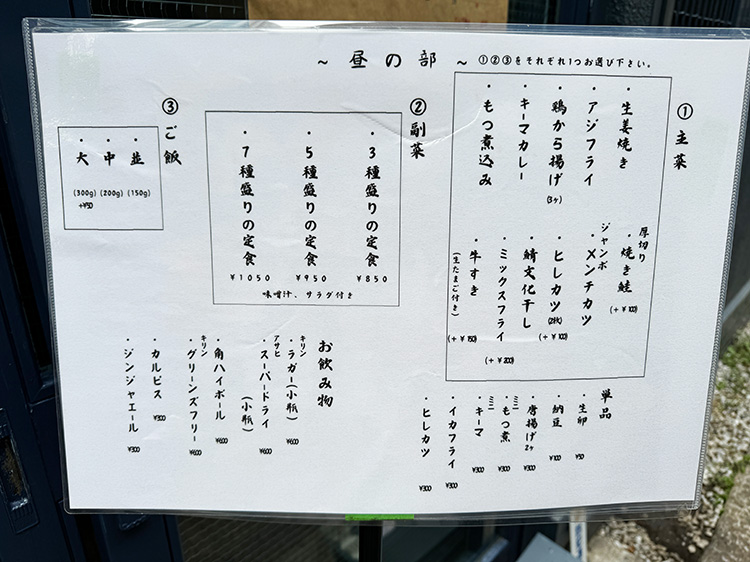 ～ 昼の部 ～ ①②③をそれぞれ1つお選び下さい。
① 主菜
・生姜焼き
・アジフライ
・鶏から揚げ(3ヶ)
・キーマカレー
・もつ煮込み
厚切り
・焼き鮭(+¥100)
ジャンボ
・メンチカツ
・ヒレカツ(2枚)(+¥100)
・鯖文化干し
・ミックスフライ(+¥200)
・牛すき(+¥150)
(生たまご付き)
② 副菜
・3種盛りの定食 ¥850
・5種盛りの定食 ¥950
・7種盛りの定食 ¥1050
味噌汁、サラダ付き
③ ご飯
・並(150g)
・中(200g)
・大(300g)+¥50
単品
・生卵 ¥50
・納豆 ¥100
・唐揚げ2ヶ ¥300
ミニ
・もつ煮 ¥300
ミニ
・キーマ ¥300
・イカフライ ¥300
・ヒレカツ ¥300
お飲み物
キリン
・ラガー(小瓶) ¥600
アサヒ
・スーパードライ(小瓶) ¥600
・角ハイボール ¥600
キリン
・グリーンズフリー ¥600
・カルピス ¥300
・ジンジャエール ¥300